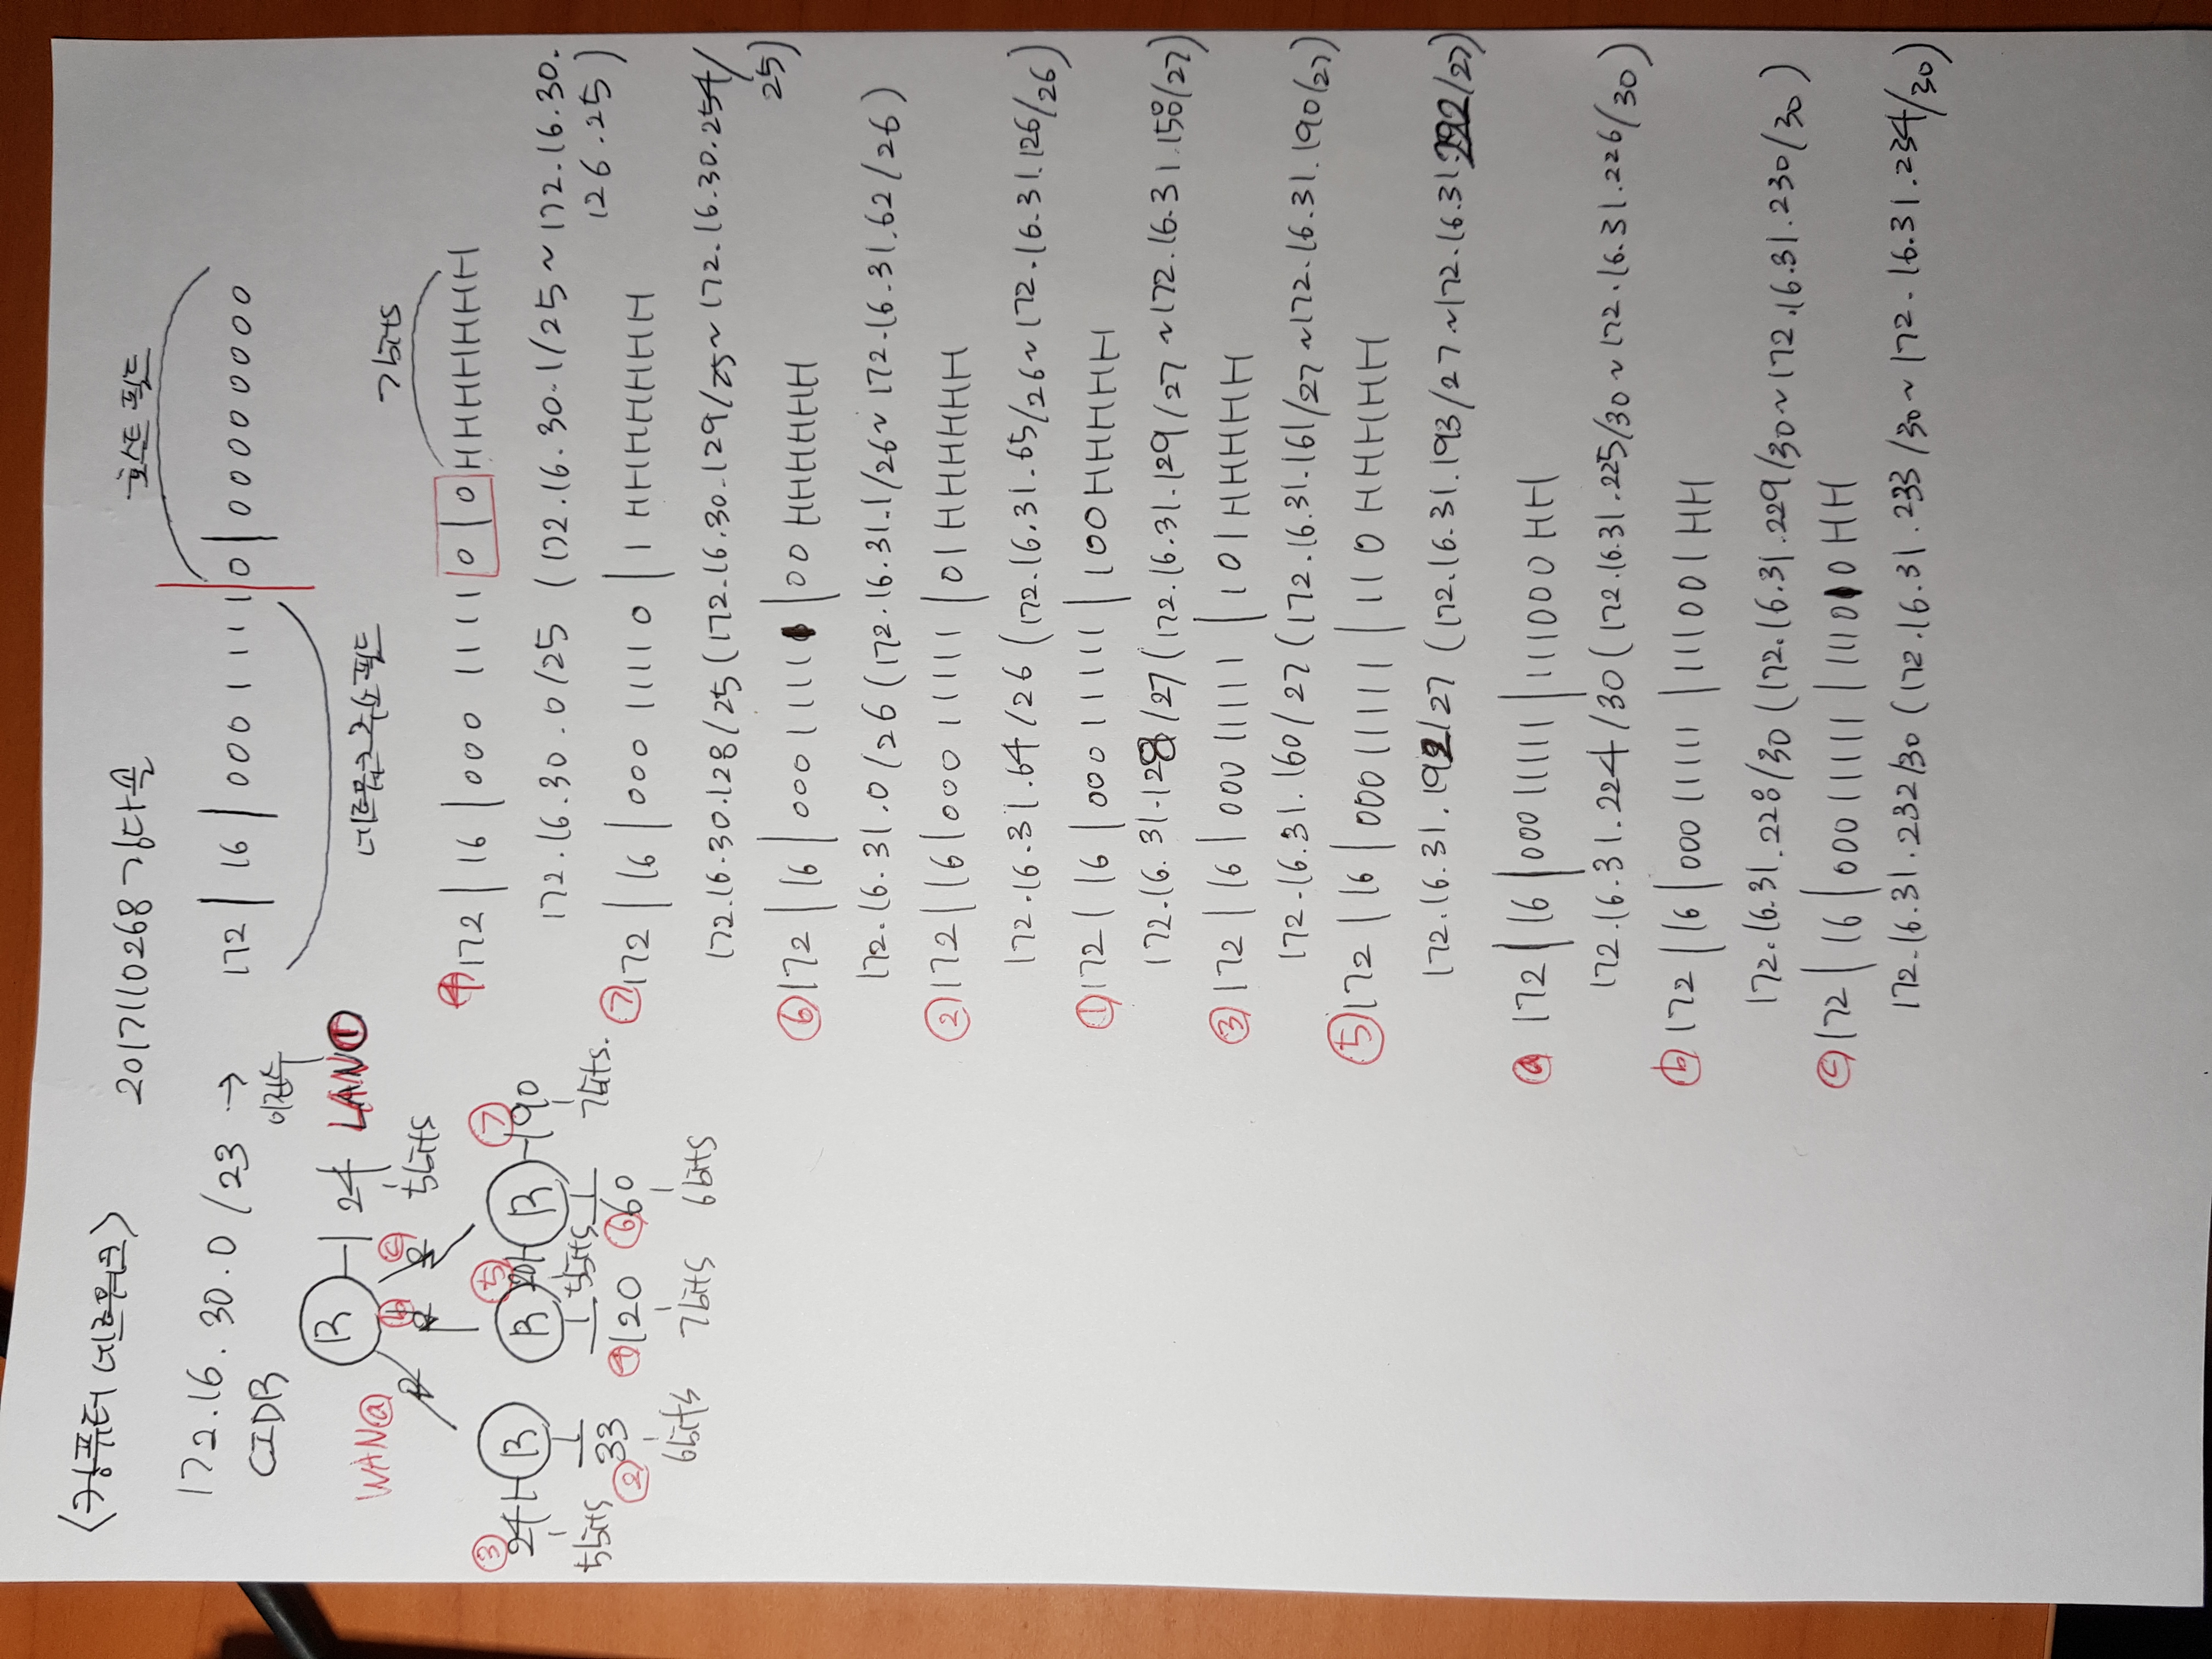 <컴퓨터 네트워크>
2017110268 김다솔
172.16.30.0/23 →
이진수
CIDR
172 | 16 | 000 1 111 0 | 0 0000000
호스트 필드
네트워크 주소 필드
R 24 LAN①
5bits
WAN ⓐ ⓑ ⓒ
③ 24 R
5bits
② 33
6bits
R ⑤ 20 R ⑦ 90
5bits
7bits.
④ 120 ⑥ 60
7bits 6bits
7bits
④ 172 | 16 | 000 1111 0 | 0 HHHHHHH
172.16.30.0/25 (172.16.30.1/25 ~ 172.16.30.
126.25)
⑦ 172 | 16 | 000 1111 0 | 1 HHHHHHH
172.16.30.128/25 (172.16.30.129/25 ~ 172.16.30.254/
25)
⑥ 172 | 16 | 000 11111 | 00 HHHHHH
172.16.31.0/26 (172.16.31.1/26 ~ 172.16.31.62/26)
② 172 | 16 | 000 11111 | 01 HHHHHH
172.16.31.64/26 (172.16.31.65/26 ~ 172.16.31.126/26)
① 172 | 16 | 000 11111 | 100 HHHHH
172.16.31.128/27 (172.16.31.129/27 ~ 172.16.31.158/27)
③ 172 | 16 | 000 11111 | 101 HHHHH
172.16.31.160/27 (172.16.31.161/27 ~ 172.16.31.190/27)
⑤ 172 | 16 | 000 11111 | 110 HHHHH
172.16.31.192/27 (172.16.31.193/27 ~ 172.16.31. /27)
ⓐ 172 | 16 | 000 11111 | 111000 HH
172.16.31.224/30 (172.16.31.225/30 ~ 172.16.31.226/30)
ⓑ 172 | 16 | 000 11111 | 111001 HH
172.16.31.228/30 (172.16.31.229/30 ~ 172.16.31.230/30)
ⓒ 172 | 16 | 000 11111 | 111010 HH
172.16.31.232/30 (172.16.31.233/30 ~ 172.16.31.234/30)